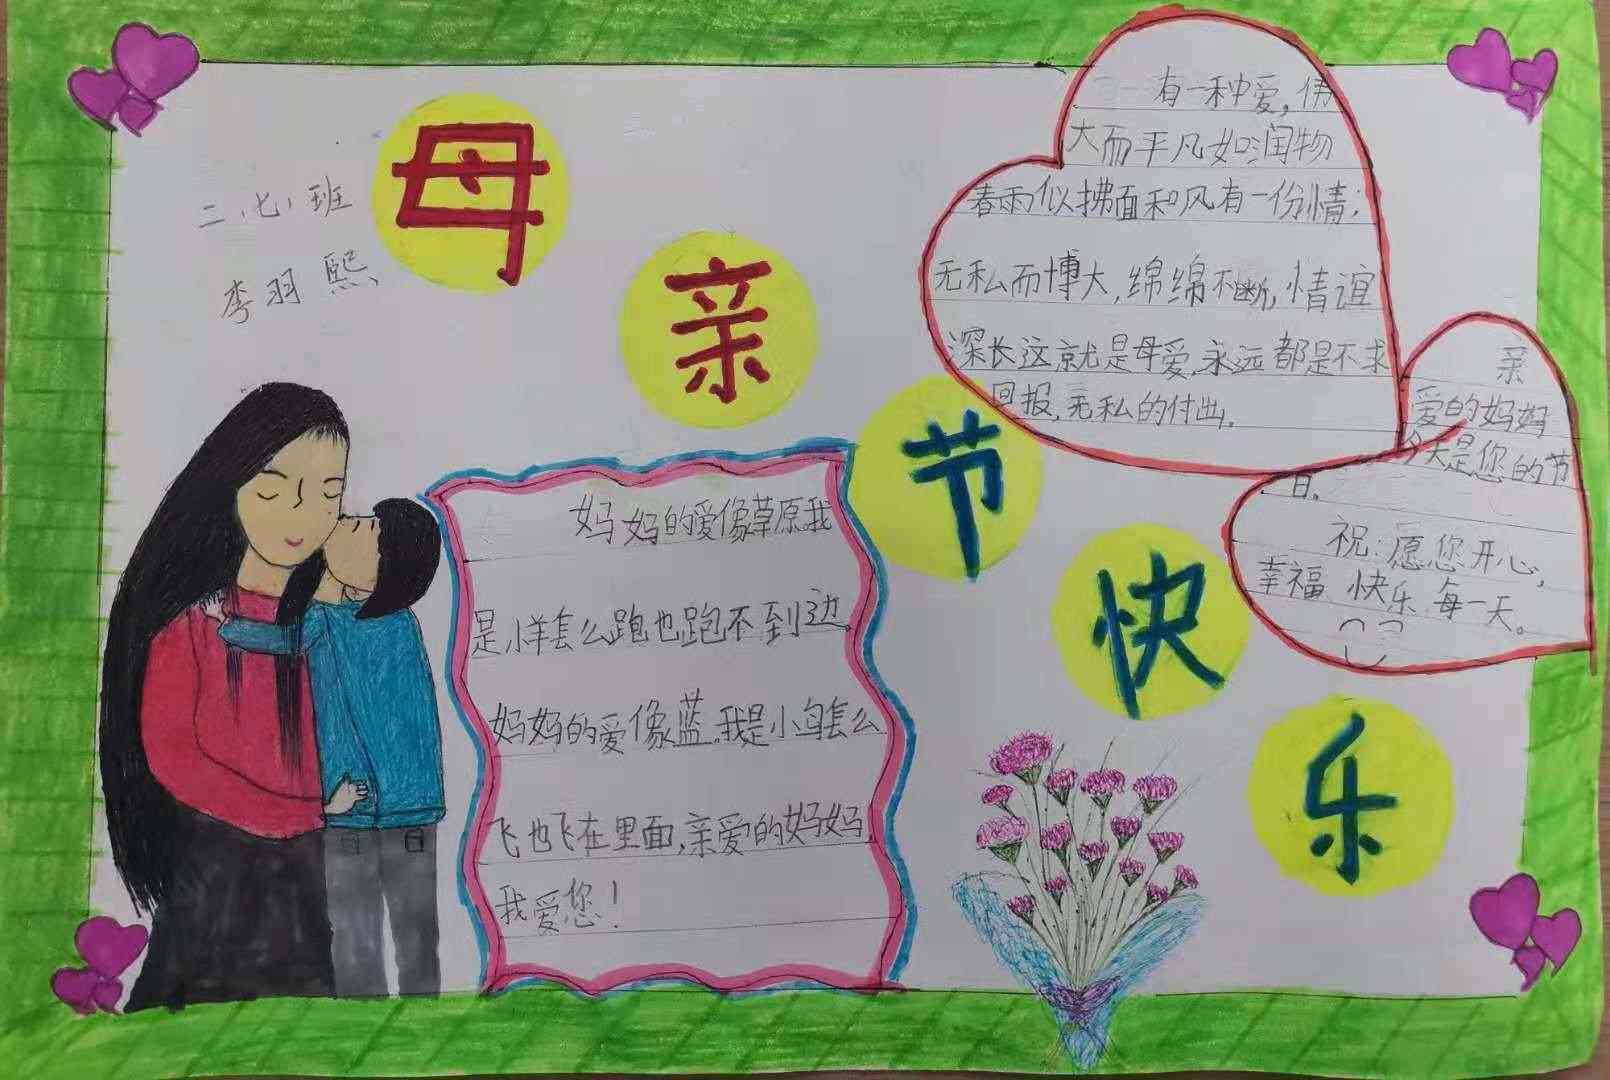 二、七、班
李羽熙
母亲节快乐
有一种爱，伟
大而平凡如润物
春雨似拂面和风有一份情；
无私而博大，绵绵不断，情谊
深长这就是母爱，永远都是不求
回报，无私的付出。
亲
爱的妈妈
今天是您的节
日。
祝：愿您开心，
幸福 快乐 每一天。
妈妈的爱像草原我
是小羊怎么跑也跑不到边。
妈妈的爱像蓝，我是小鸟怎么
飞也飞在里面，亲爱的妈妈，
我爱您！